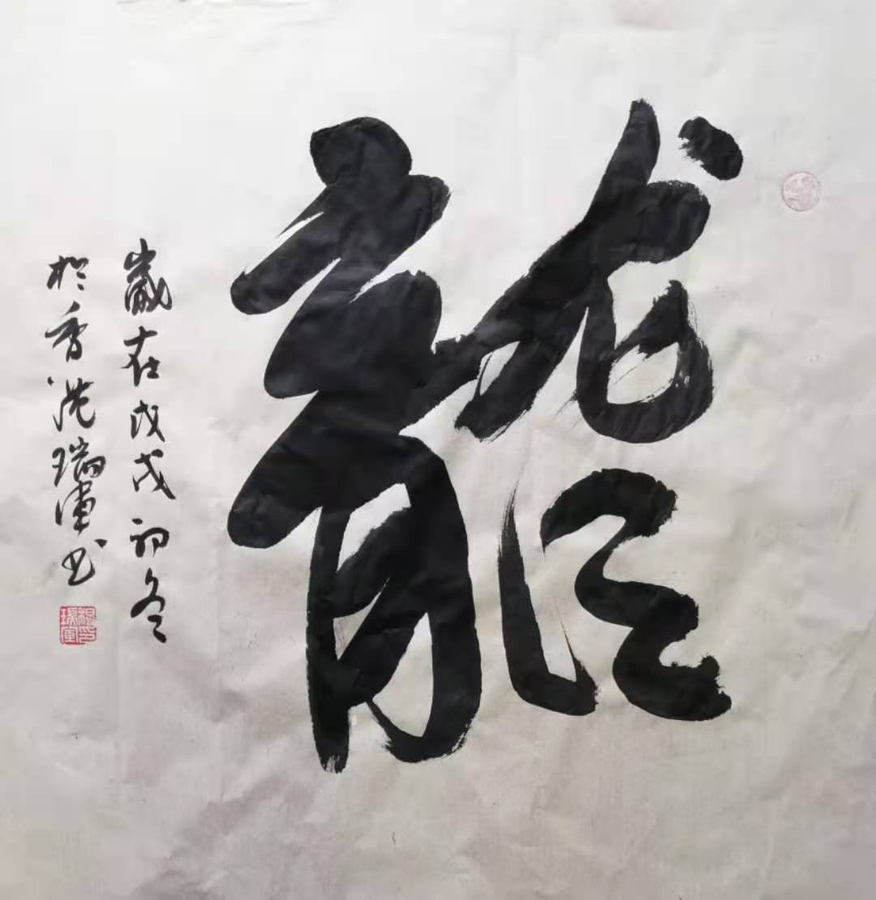 龍
歲在戊戌初冬
於香港瑞軍书